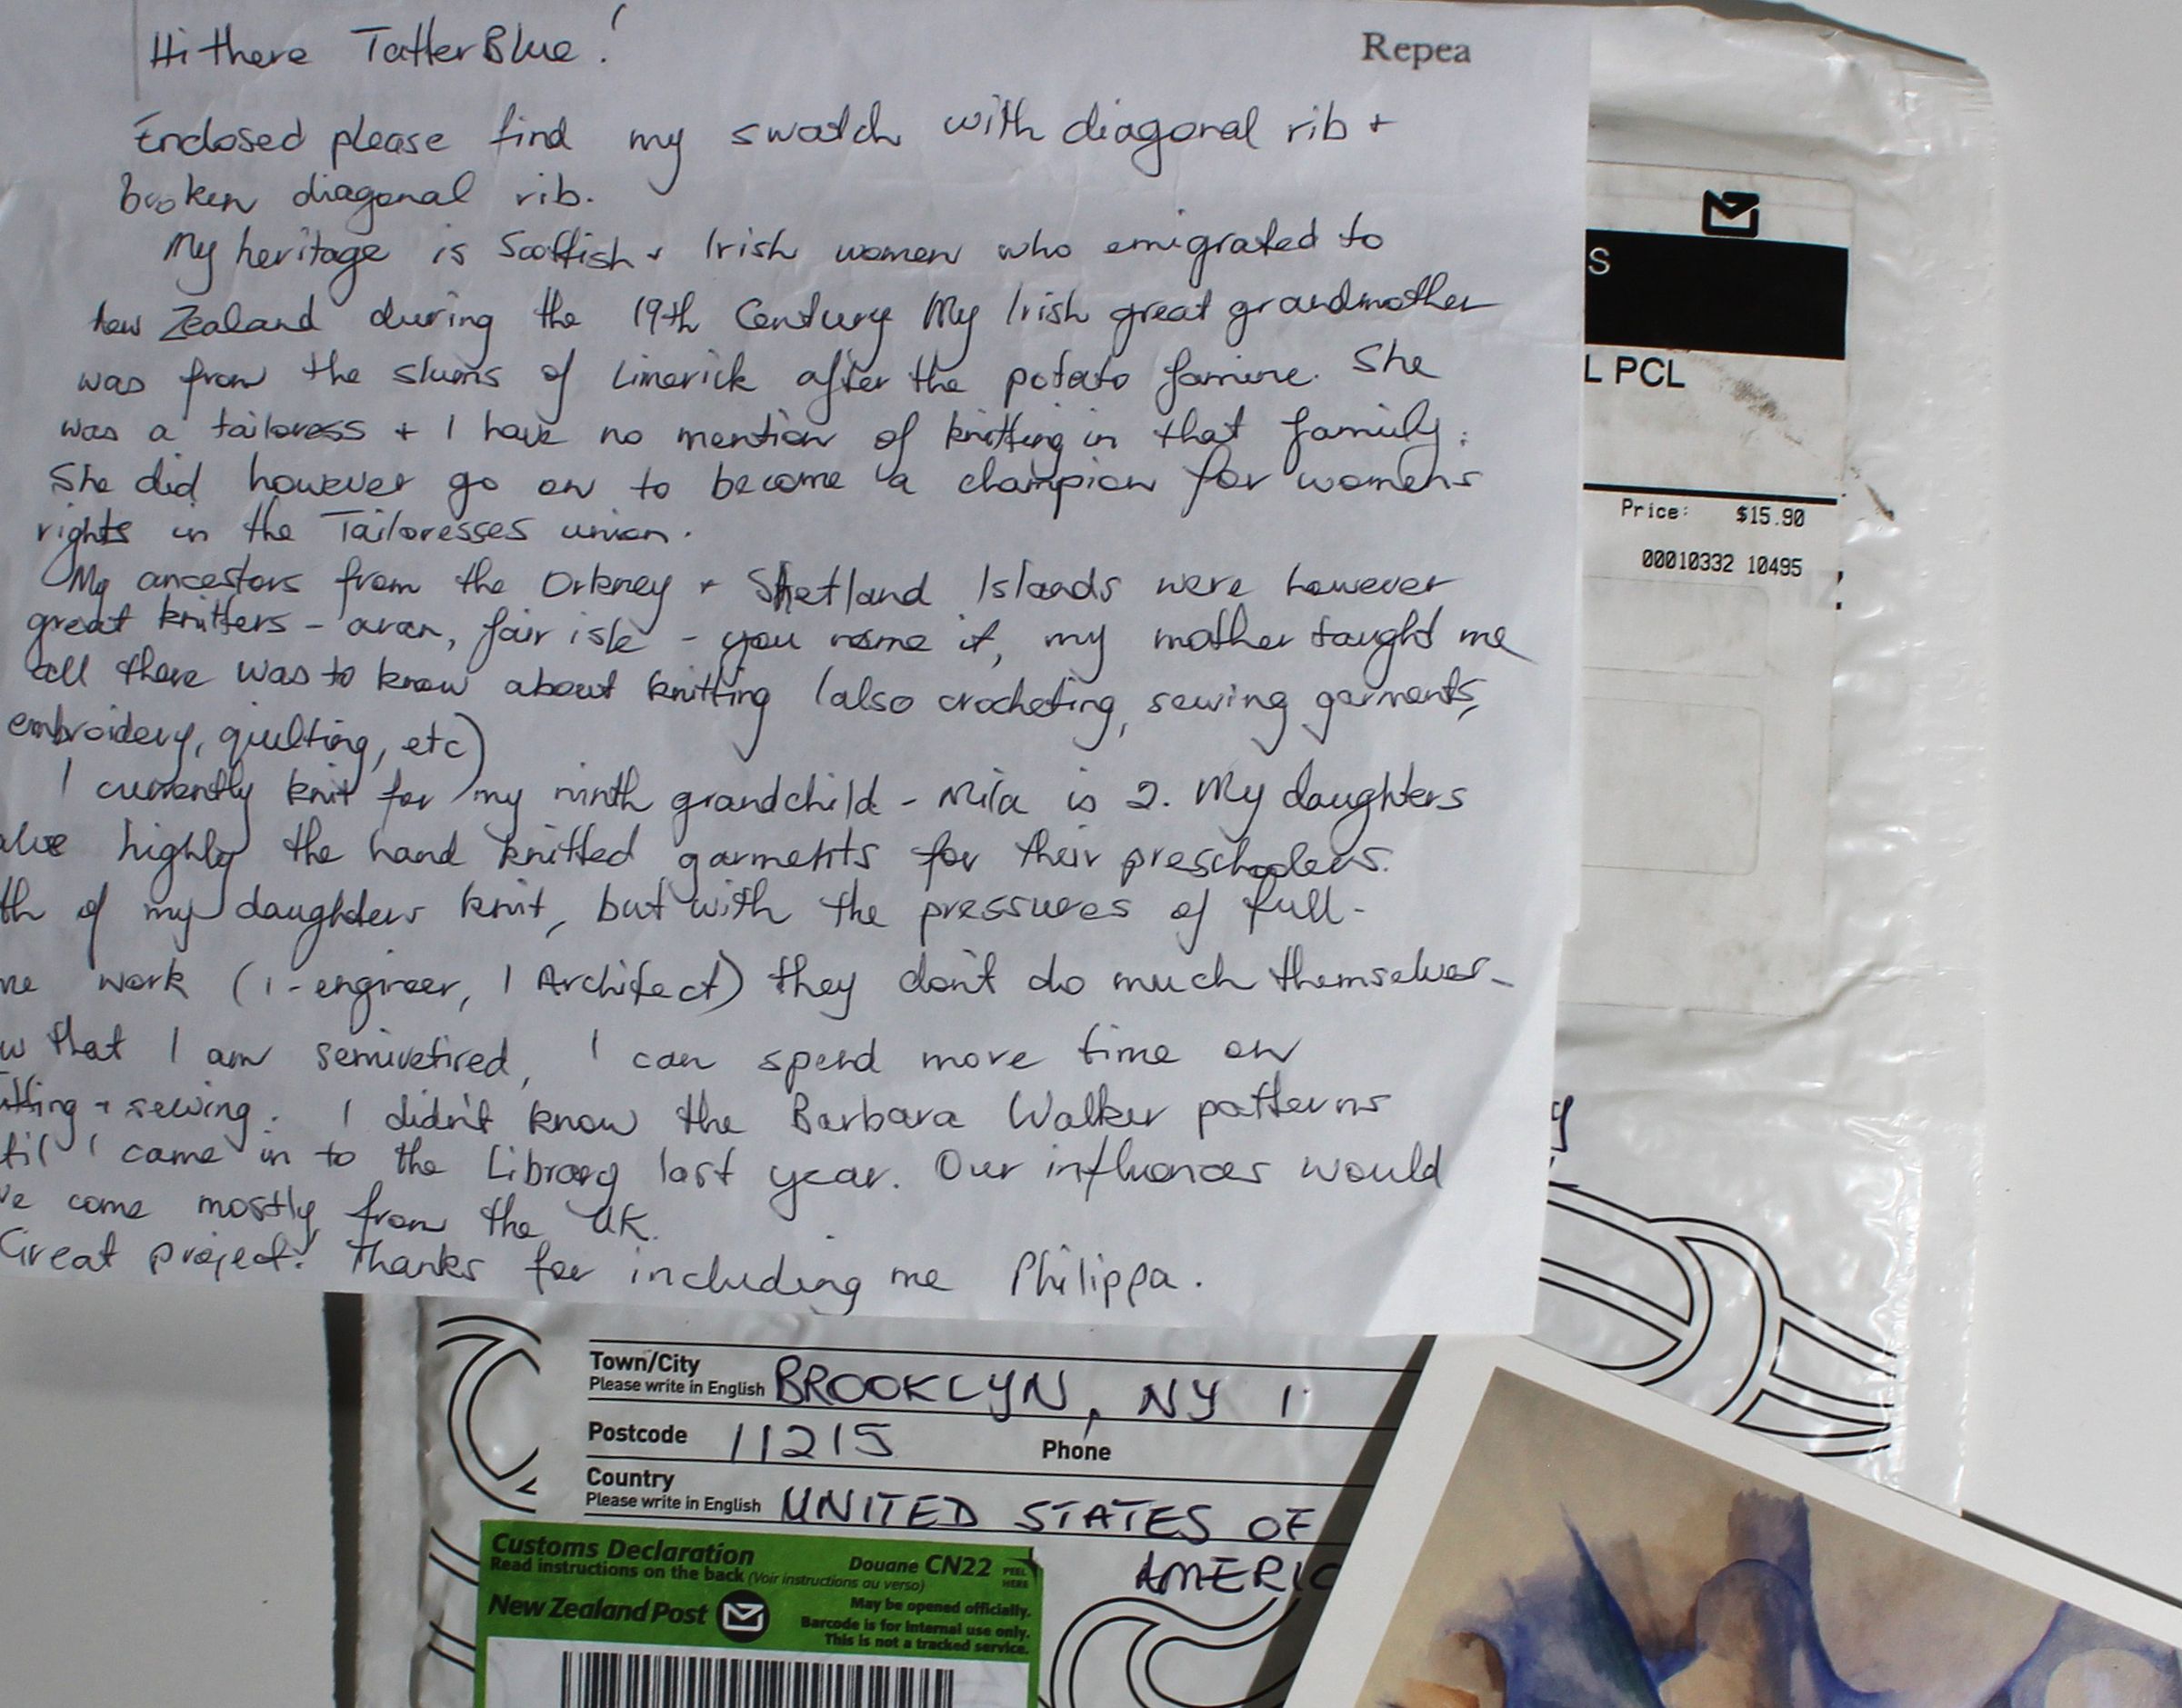 Hi there TatterBlue!
Repea
Enclosed please find my swatch with diagonal rib +
broken diagonal rib.
My heritage is Scottish + Irish women who emigrated to
New Zealand during the 19th Century My Irish great grandmother
was from the slums of Limerick after the potato famine. She
was a tailoress + I have no mention of knitting in that family.
She did however go on to become a champion for womens
rights in the Tailoresses union.
My ancestors from the Orkney + Shetland Islands were however
great knitters - aran, fair isle - you name it, my mother taught me
all there was to know about knitting (also crocheting, sewing garments,
embroidery, quilting, etc)
I currently knit for my ninth grandchild - Mila is 2. My daughters
alue highly the hand knitted garments for their preschoolers.
th of my daughters knit, but with the pressures of full-
me work (1-engineer, 1 Architect) they don't do much themselves-
w that I am semiretired, I can spend more time on
itting + sewing. I didn't know the Barbara Walker patterns
til I came in to the Library last year. Our influences would
ve come mostly from the UK.
Great project! Thanks for including me Philippa.
S
L PCL
Price: $15.90
00010332 10495
Town/City
Please write in English BROOKLYN, NY 1
Postcode 11215 Phone
Country
Please write in English UNITED STATES OF
AMERIC
Customs Declaration Douane CN22 PEEL HERE
Read instructions on the back (Voir instructions au verso)
New Zealand Post
May be opened officially.
Barcode is for internal use only.
This is not a tracked service.